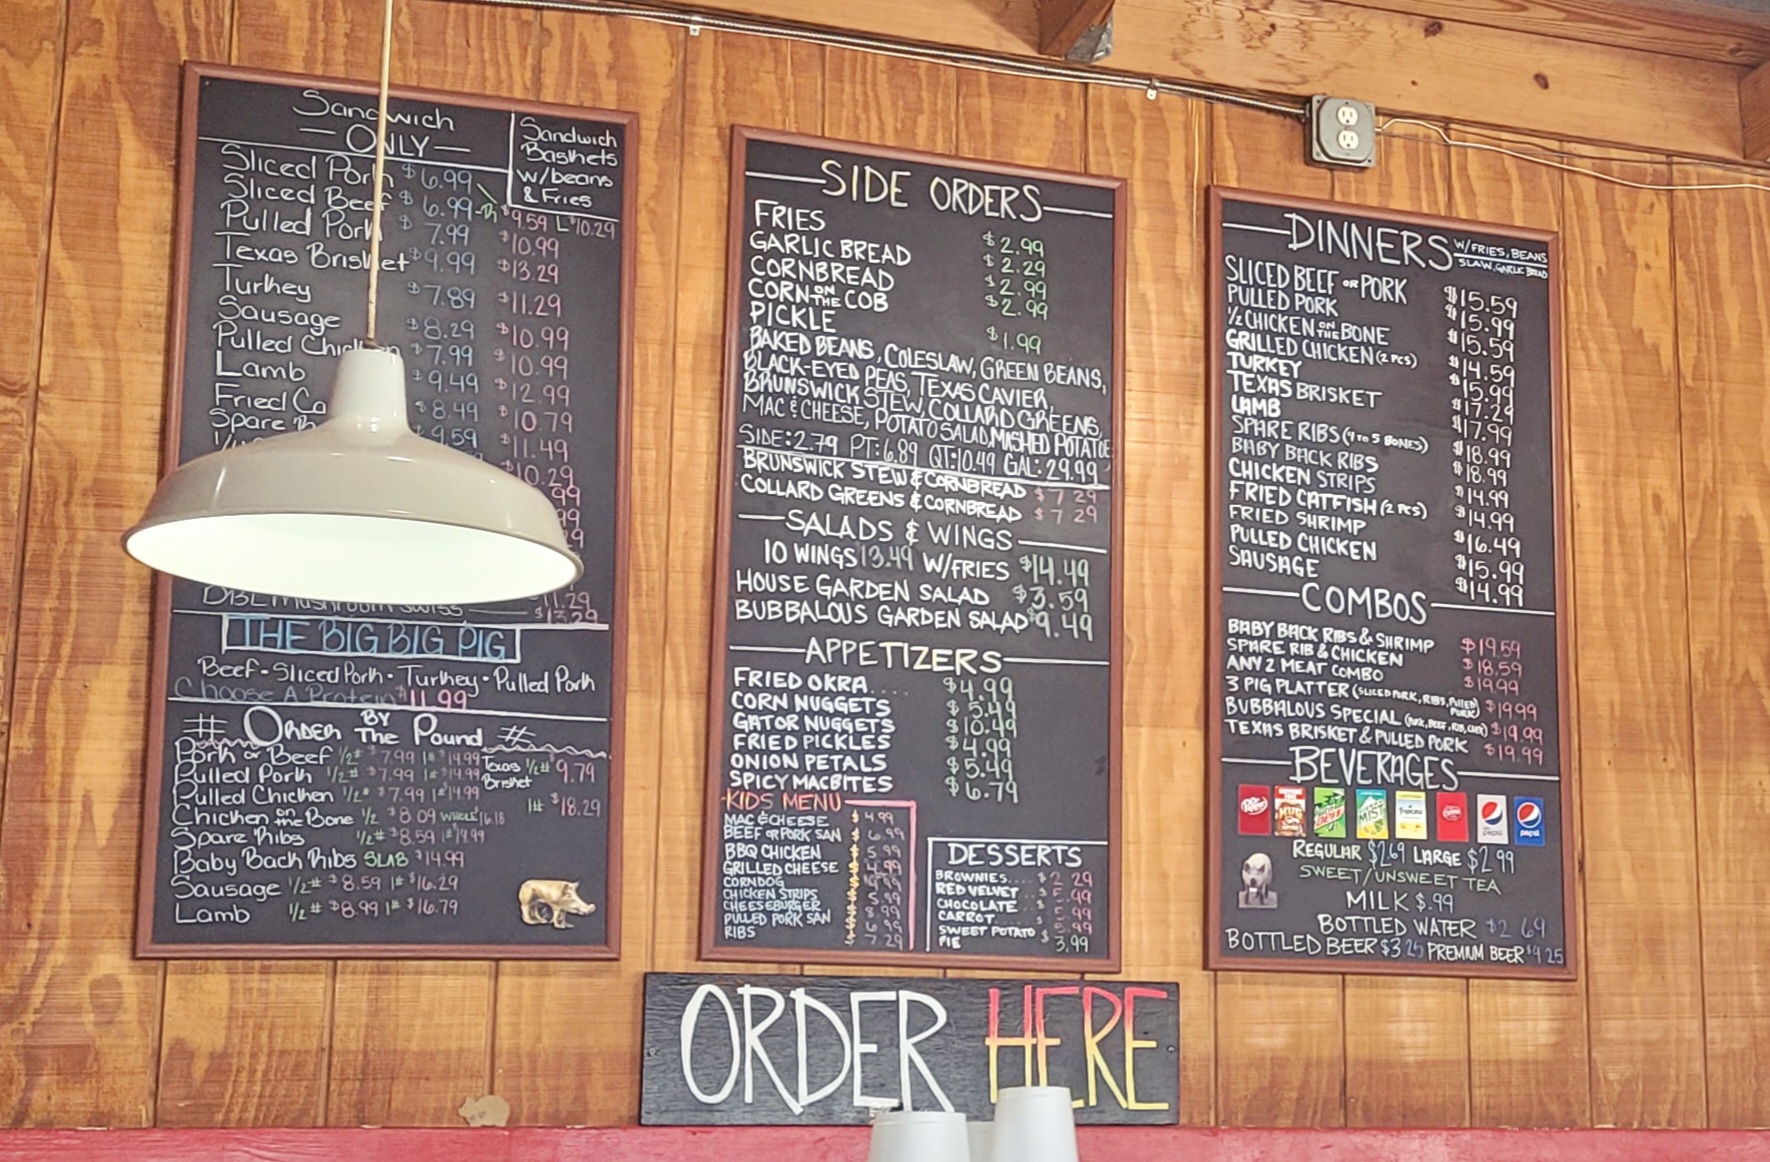 Sandwich
ONLY
Sandwich
Baskets
w/beans
& Fries
Sliced Pork $6.99
Sliced Beef $6.99 $9.59 L $10.29
Pulled Pork $7.99 $10.99
Texas Brisket $9.99 $13.29
Turkey $7.89 $11.29
Sausage $8.29 $10.99
Pulled Chicken $7.99 $10.99
Lamb $9.49 $12.99
Fried $8.49 $10.79
Spare $9.59 $11.49
$10.29
Mushroom Swiss $13.29
THE BIG BIG PIG
Beef • Sliced Pork • Turkey • Pulled Pork
Choose A Protein $11.99
# Order by The Pound #
Pork or Beef 1/2# $7.99 1# $14.99
Pulled Pork 1/2# $7.99 1# $14.99
Pulled Chicken 1/2# $7.99 1# $14.99
Chicken on the Bone 1/2 $8.09 WHOLE $16.18
Spare Ribs 1/2# $8.59 1# $14.99
Baby Back Ribs SLAB $14.99
Sausage 1/2# $8.59 1# $16.29
Lamb 1/2# $8.99 1# $16.79
Texas Brisket 1/2# $9.79
1# $18.29
SIDE ORDERS
FRIES $2.99
GARLIC BREAD $2.29
CORNBREAD $2.99
CORN ON THE COB $2.99
PICKLE $1.99
BAKED BEANS, COLESLAW, GREEN BEANS,
BLACK-EYED PEAS, TEXAS CAVIER,
BRUNSWICK STEW, COLLARD GREENS,
MAC & CHEESE, POTATO SALAD, MASHED POTATOE
SIDE: 2.79 PT: 6.89 QT: 10.49 GAL: 29.99
BRUNSWICK STEW & CORNBREAD $7.29
COLLARD GREENS & CORNBREAD $7.29
SALADS & WINGS
10 WINGS 13.49 W/FRIES $14.49
HOUSE GARDEN SALAD $3.59
BUBBALOUS GARDEN SALAD $9.49
APPETIZERS
FRIED OKRA.... $4.99
CORN NUGGETS $5.49
GATOR NUGGETS $10.49
FRIED PICKLES $4.99
ONION PETALS $5.49
SPICY MACBITES $6.79
KIDS MENU
MAC & CHEESE $4.99
BEEF OR PORK SAN $6.99
BBQ CHICKEN $5.99
GRILLED CHEESE
CORNDOG
CHICKEN STRIPS
CHEESEBURGER
PULLED PORK SAN $6.99
RIBS $7.29
DESSERTS
BROWNIES.... $2.29
RED VELVET $5.99
CHOCOLATE $5.99
CARROT $5.99
SWEET POTATO
PIE $3.99
DINNERS W/FRIES, BEANS
SLAW, GARLIC BREAD
SLICED BEEF OR PORK $15.59
PULLED PORK $15.99
1/2 CHICKEN ON THE BONE $15.59
GRILLED CHICKEN (2 PCS) $14.59
TURKEY $15.99
TEXAS BRISKET $17.29
LAMB $17.99
SPARE RIBS (4 TO 5 BONES) $18.99
BABY BACK RIBS $18.99
CHICKEN STRIPS $14.99
FRIED CATFISH (2 PCS) $14.99
FRIED SHRIMP $16.49
PULLED CHICKEN $15.99
SAUSAGE $14.99
COMBOS
BABY BACK RIBS & SHRIMP $19.59
SPARE RIB & CHICKEN $18.59
ANY 2 MEAT COMBO $19.99
3 PIG PLATTER (SLICED PORK, RIBS, PULLED PORK) $19.99
BUBBALOUS SPECIAL (PORK, BEEF, RIB, CHICK) $19.99
TEXAS BRISKET & PULLED PORK $19.99
BEVERAGES
Dr Pepper MUG MIST Tropicana pepsi pepsi
REGULAR $2.69 LARGE $2.99
SWEET/UNSWEET TEA
MILK $.99
BOTTLED WATER $2.69
BOTTLED BEER $3.25 PREMIUM BEER $4.25
ORDER HERE